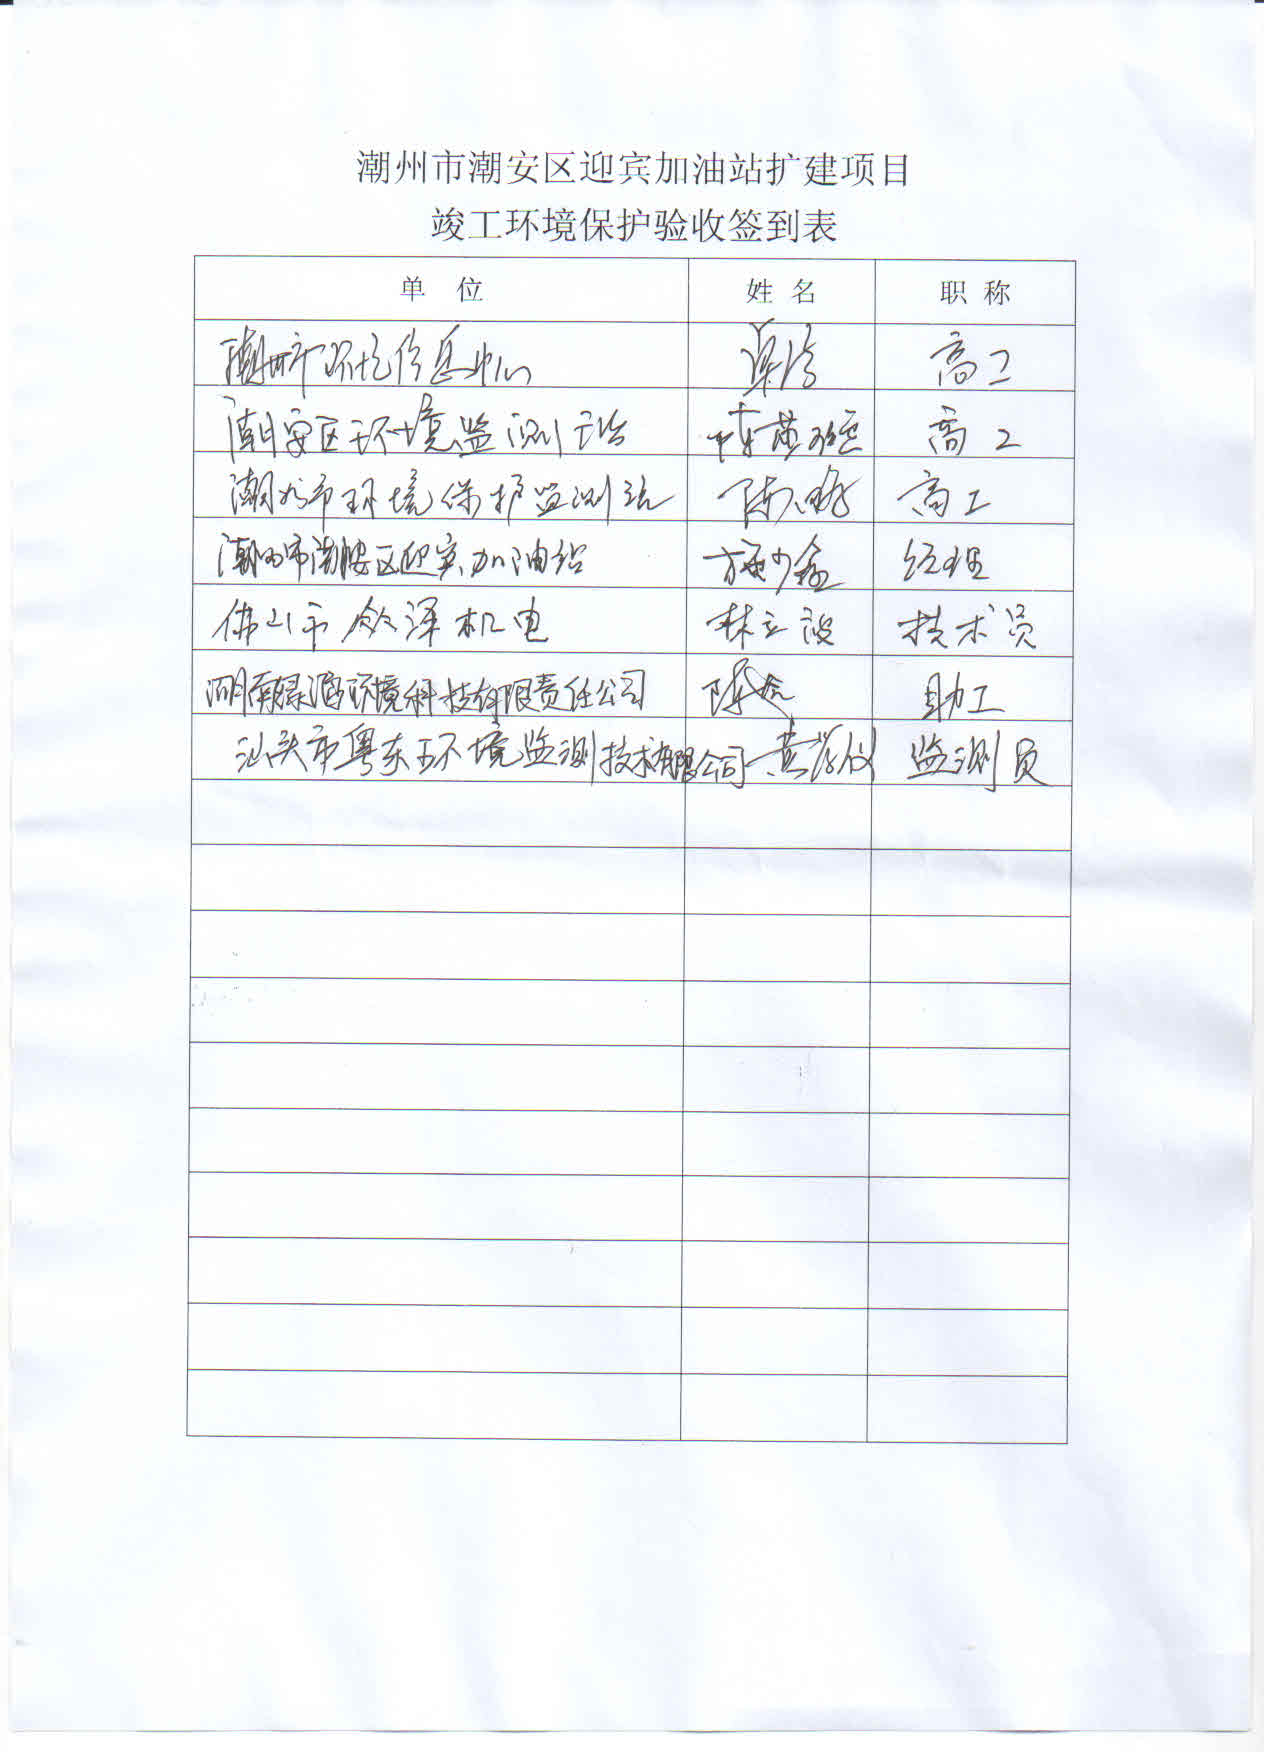 潮州市潮安区迎宾加油站扩建项目
竣工环境保护验收签到表
单 位 姓 名 职 称
潮州市环境信息中心 高工
潮安区环境监测站 高工
潮州市环境保护监测站 陈 高工
潮州市潮安区迎宾加油站 经理
佛山市 泽机电 林立 技术员
湖南绿源环境科技有限责任公司 陈 助工
汕头市粤东环境监测技术有限公司 黄 仪 监测员